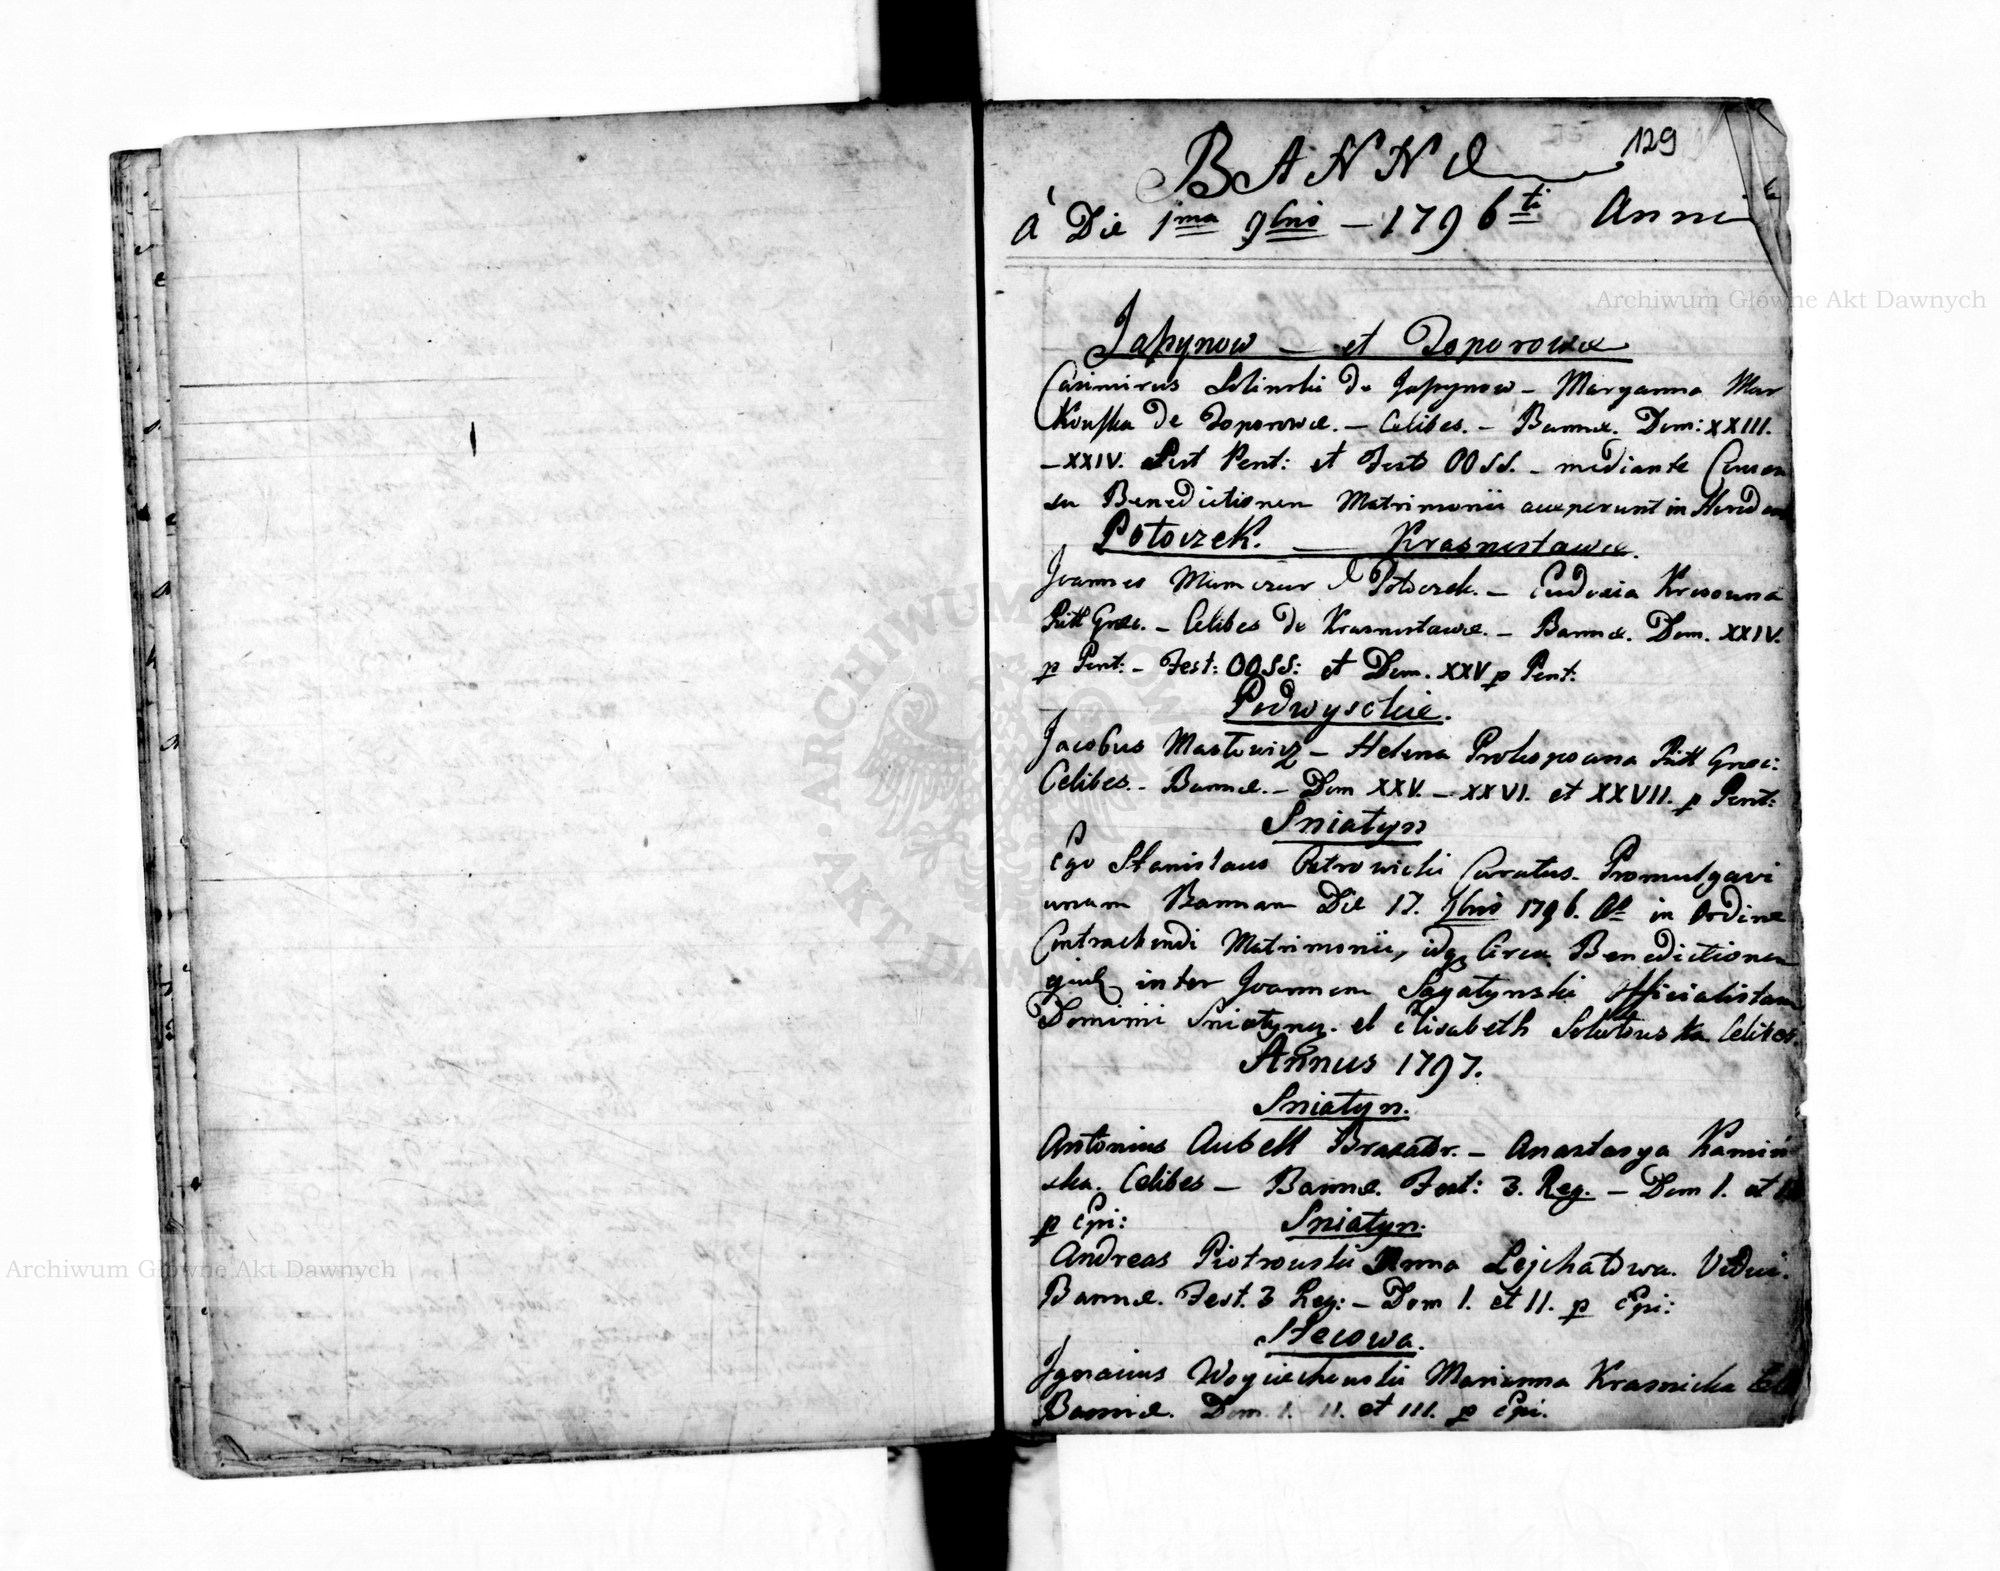 129
BANNÆ
à Die 1ma 9bris – 1796ti Anni
Japynow – et Toporowce
Casimirus Solinski de Japynow – Maryanna Mar
Kouska de Toporowce. – Celibes. – Bannæ. Dom: XXIII.
– XXIV. Post Pent: et Festo OOSS. – mediante Consen
su Benedictionem Matrimonii acceperunt in
Potoczek. – Krasnostawce.
Joannes Potoczek. – Eudoxia
Ritt Græc. – Celibes de Krasnostawce. – Bannæ. Dom. XXIV.
p Pent: – Fest: OOSS: et Dom. XXV p Pent:
Podwysokie.
Jacobus Masłowicz – Helena Prokopowna Ritt Græc:
Celibes. – Bannæ. – Dom XXV. – XXVI. et XXVII. p Pent:
Sniatyn
Ego Stanislaus Ostrowicki Curatus. Promulgavi
unam Bannam Die 17. 9bris 1796. Ao in Ordine
Contrahendi Matrimonii, idq Circa Benedictionem
inter Joannem Sagatynski Officialistam
Dominii Sniatyn. et Elisabeth Celibes.
Annus 1797.
Sniatyn.
Antonius Aubell Braxator. – Anastasya Kamiń
ska. Celibes – Bannæ. Fest: 3. Reg. – Dom I. et II
p Epi:
Sniatyn.
Andreas Piotrouski Anna Lejchatowa. Vidui.
Bannæ. Fest. 3 Reg: – Dom I. et II. p Epi:
Stecowa.
Ignacius Woyciechouski Marianna Krasnicka
Bannæ. Dom. I. – II. et III. p Epi.
Archiwum Główne Akt Dawnych
Archiwum Główne Akt Dawnych
ARCHIWUM GŁÓWNE AKT DAWNYCH